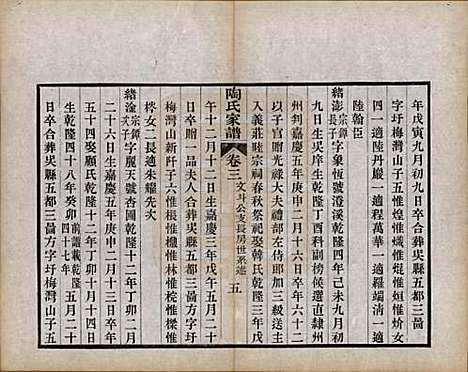 年戊寅九月初九日卒合葬吳縣五都三啚
字圩梅灣山子五惟煌惟熾惟焜惟烜惟炌女
四一適陸丹嚴一適程萬華一適羅端清一適
陸翰臣
緒澎宗鐸子字象恆號澄溪乾隆四年己未九月初
九日生吳庠生乾隆丁酉科副榜候選直隸州
州判嘉慶五年庚申二月十六日卒年六十二
以子官贈光祿大夫禮部左侍郎加三級送主
入義莊睦宗祠春秋祭祀娶韓氏乾隆三年戊
陶氏家譜 卷三 文斗公支長房世系 五
午十二月十二日生嘉慶三年戊午五月二十
日卒贈一品夫人合葬吳縣五都三啚方字圩
梅灣山新阡子六惟根惟林惟梡惟樑惟
㭎女二長適朱耀先次
緒淦宗鐸長子字麗天號杏圃乾隆十二年丁卯十月
二十六日生嘉慶五年庚申二月十三日卒年
五十四娶顧氏乾隆十二年丁卯十月十四日
生乾隆四十八年癸卯前譜載乾隆四十七年二月二十四
日卒合葬吳縣五都三啚方字圩梅灣山子五